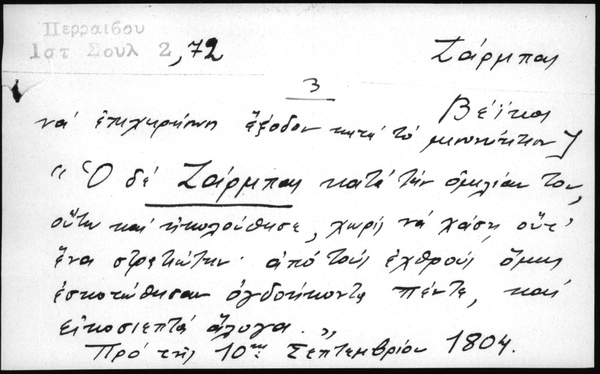 Περραιβου
Ιστ Σουλ 2,72
Ζάρμπας
3
Βέϊκος
νά ἐπιχειρήσῃ ἔξοδον κατά τό μεσονύκτιον
"Ὁ δέ Ζάρμπας κατά τήν ὁμιλίαν του,
οὕτω καί ἠκολούθησε, χωρίς νά χάσῃ οὔτ'
ἕνα στρατιώτην· ἀπό τούς ἐχθρούς ὅμως
ἐσκοτώθησαν ὀγδοήκοντα πέντε, καί
εἰκοσιεπτά ἄλογα."
Πρό τῆς 10ης Σεπτεμβρίου 1804.